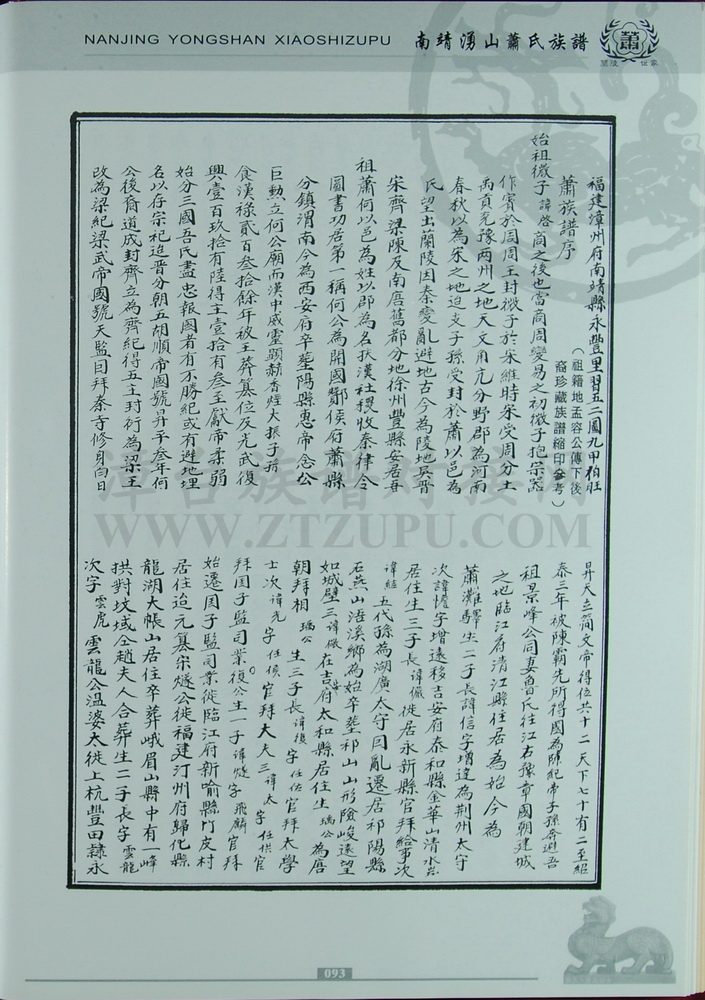 NANJING YONGSHAN XIAOSHIZUPU 南靖湧山蕭氏族譜
蕭
蘭陵 世家
福建漳州府南靖縣永豐里習五二圖九甲柏庄
(祖籍地孟容公傳下後
裔珍藏族譜縮印參考)
蕭族譜序
始祖微子諱啓商之後也當商周變易之初微子抱宗器
作賓於周周王封微子於宋維時宋受周分土
禹貢兗豫兩州之地天文角亢分野郡為河南
春秋以為宋之地迨支子孫受封於蕭以邑為
氏望出蘭陵因秦變亂避地古今為陵地吳晋
宋齊梁陳及南唐舊都分地徐州豐縣安居吾
祖蕭何以邑為姓以郡為名扶漢社稷收秦律令
圖書功居第一稱何公為開國酇侯府蕭縣
分鎮渭南今為西安府卒塟陽縣惠帝念公
巨勳立何公廟而漢中威靈顯赫香煙大振子孫
食漢祿貳百叁拾餘年被王莽篡位及光武復
興壹百玖拾有陸得主壹拾有叁至獻帝柔弱
始分三國吾氏盡忠報國者有不勝紀或有避地埋
名以存宗祀迨晋分朝五胡順帝國號昇平叁年何
公後裔道成封齊立為齊紀得五主封衍為梁王
改為梁紀梁武帝國號天監目拜秦寺修身白日
昇天立簡文帝得位共十二天下七十有二至紹
泰三年被陳霸先所得國為陳紀帝子孫奔避吾
祖景峰公同妻魯氏往江右豫章國朝建城
之地臨江府清江縣住居為始今為
蕭灘驛生二子長諱信字增達為荊州太守
次諱憺字增遠移吉安府泰和縣金華山清水
居住生三子長諱儼徙居永新縣官拜給事次
諱經五代孫為湖廣太守因亂遷居祁陽縣
石燕山浯溪鄉為始卒塟祁山山形險峻遠望
如城壁三諱儆在吉府太和縣居住生瑀公為唐
朝拜相瑀公生三子長諱復字任佐官拜太學
士次諱光字任傎官拜大夫三諱太字任供官
拜囯子監司業復公生一子諱燧字飛麟官拜
始遷囯子監司業徙臨江府新喻縣竹皮村
居住迨元篡宋燧公徙福建汀州府歸化縣
龍湖大帳山居住卒葬峨眉山縣中有一峰
拱對坟域仝趙夫人合葬生二子長字雲龍
次字雲虎雲龍公溫婆太徙上杭豐田隸永
漳台族譜對接網
WWW.ZTZUPU.COM
093